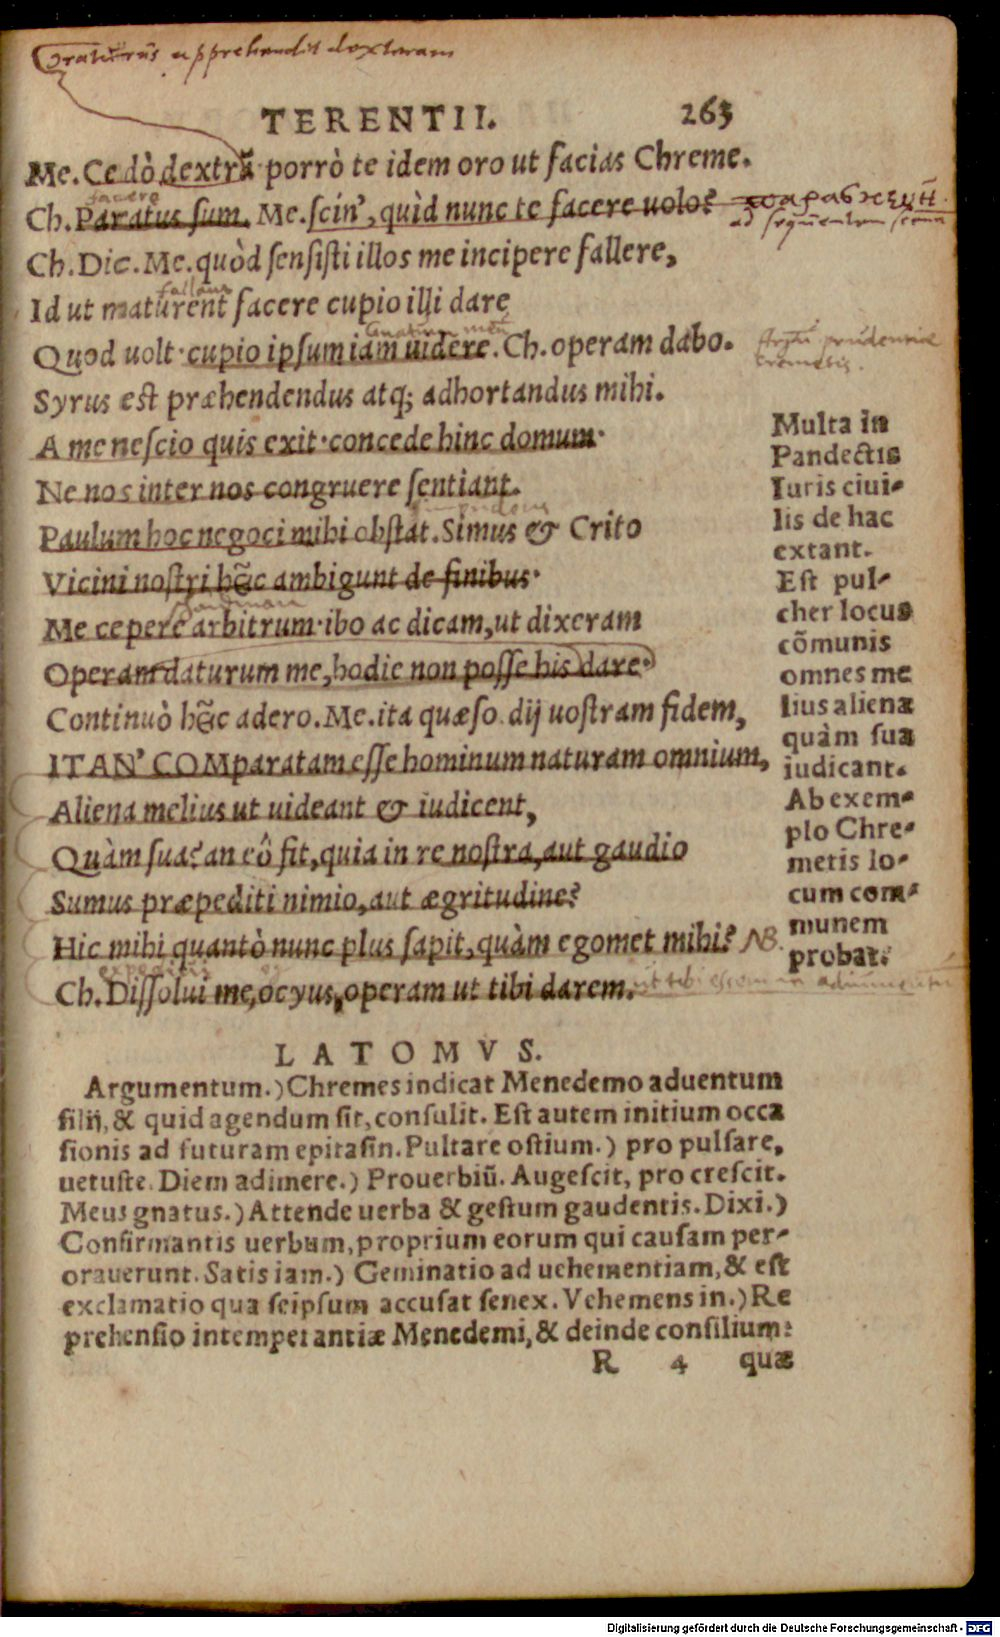 Oraturus apprehendit dextram
TERENTII. 263
Me. Cedò dextrã porrò te idem oro ut facias Chreme.
facere
Ch. Paratus sum. Me. scin', quid nunc te facere uolo? παρασκευὴ
ad sequentem scenã
Ch. Dic. Me. quòd sensisti illos me incipere fallere,
Id ut maturent facere cupio illi dare
Quod uolt· cupio ipsum iam uidere. Ch. operam dabo.
prudentiæ
Cremetis.
Syrus est præhendendus atq; adhortandus mihi.
A me nescio quis exit· concede hinc domum·
Ne nos inter nos congruere sentiant.
Paulum hoc negoci mihi obstat. Simus & Crito
Vicini nostri hîc ambigunt de finibus·
Me cepere arbitrum· ibo ac dicam, ut dixeram
Operam daturum me, hodie non posse his dare·
Continuò hîc adero. Me. ita quæso. dij uostram fidem,
ITAN' COMparatam esse hominum naturam omnium,
Aliena melius ut uideant & iudicent,
Quàm sua? an eô fit, quia in re nostra, aut gaudio
Sumus præpediti nimio, aut ægritudine?
Hic mihi quantò nunc plus sapit, quàm egomet mihi? NB.
Ch. Dissolui me, ocyus, operam ut tibi darem. ut tibi essem in
Multa in
Pandectis
Iuris ciui-
lis de hac
extant.
Est pul-
cher locus
cõmunis
omnes me
lius aliena
quàm sua
iudicant.
Ab exem-
plo Chre-
metis lo-
cum com-
munem
probat.
LATOMVS.
Argumentum.) Chremes indicat Menedemo aduentum
filij, & quid agendum sit, consulit. Est autem initium occa
sionis ad futuram epitasin. Pultare ostium.) pro pulsare,
uetuste. Diem adimere.) Prouerbiũ. Augescit, pro crescit.
Meus gnatus.) Attende uerba & gestum gaudentis. Dixi.)
Confirmantis uerbum, proprium eorum qui causam per-
orauerunt. Satis iam.) Geminatio ad uehementiam, & est
exclamatio qua seipsum accusat senex. Vehemens in.) Re
prehensio intemperantiæ Menedemi, & deinde consilium:
R 4 quæ
Digitalisierung gefördert durch die Deutsche Forschungsgemeinschaft - DFG